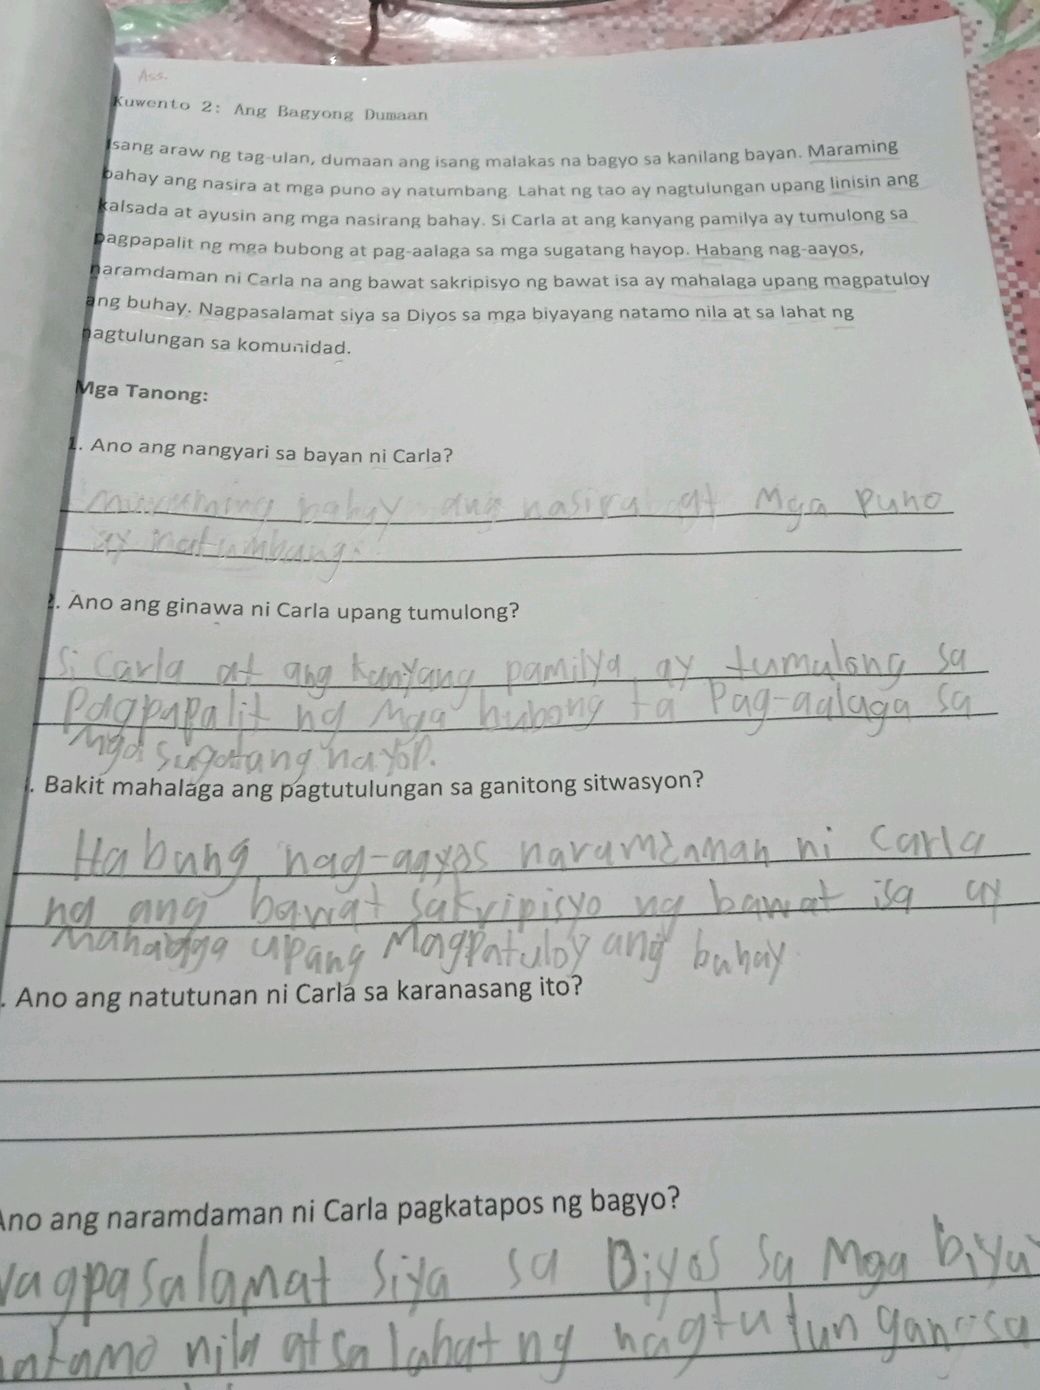 Ass.
Kuwento 2: Ang Bagyong Dumaan
Isang araw ng tag-ulan, dumaan ang isang malakas na bagyo sa kanilang bayan. Maraming
bahay ang nasira at mga puno ay natumbang. Lahat ng tao ay nagtulungan upang linisin ang
kalsada at ayusin ang mga nasirang bahay. Si Carla at ang kanyang pamilya ay tumulong sa
pagpapalit ng mga bubong at pag-aalaga sa mga sugatang hayop. Habang nag-aayos,
naramdaman ni Carla na ang bawat sakripisyo ng bawat isa ay mahalaga upang magpatuloy
ang buhay. Nagpasalamat siya sa Diyos sa mga biyayang natamo nila at sa lahat ng
nagtulungan sa komunidad.
Mga Tanong:
1. Ano ang nangyari sa bayan ni Carla?
bahay ang nasira at Mga puno
ay natumbang.
2. Ano ang ginawa ni Carla upang tumulong?
Si Carla at ang kanyang pamilya ay tumulong sa
Pagpapalit ng Mga bubong ta Pag-aalaga sa
Mga sugatang hayop.
. Bakit mahalaga ang pagtutulungan sa ganitong sitwasyon?
Habang nag-aayos ni Carla
ng ang bawat sakripisyo ng bawat isa ay
upang Magpatuloy ang buhay
. Ano ang natutunan ni Carla sa karanasang ito?
Ano ang naramdaman ni Carla pagkatapos ng bagyo?
Nagpasalamat Siya sa Diyos Sa Mga biya
natamo nila at sa lahat ng nagtutungan sa